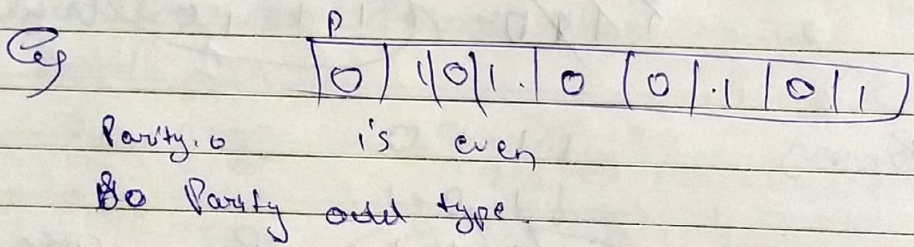 P
Eg 0 1 0 1 0 0 1 0 1
Parity.0 1's even
So Parity odd type.